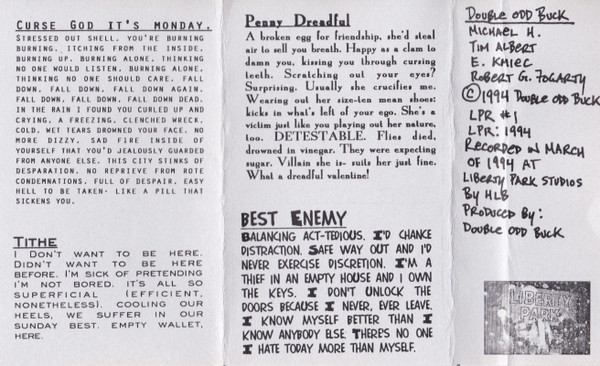 Curse God it's Monday.
Stressed out shell, you're burning
burning. Itching from the inside,
burning up. Burning alone, thinking
no one would listen, burning alone,
thinking no one should care. Fall
down, fall down, fall down again,
fall down, fall down, fall down dead.
In the rain I found you curled up and
crying, a freezing, clenched wreck.
Cold, wet tears drowned your face. No
more dizzy, sad fire inside of
yourself that you'd jealously guarded
from anyone else. This city stinks of
desparation. No reprieve from rote
condemnations, full of despair, easy
hell to be taken- like a pill that
sickens you.
Tithe
I Don't want to be here.
Didn't want to be here
before. I'm sick of pretending
I'm not bored. It's all so
superficial (efficient,
nonetheless). Cooling our
heels, we suffer in our
Sunday best. Empty wallet,
here.
Penny Dreadful
A broken egg for friendship, she'd steal
air to sell you breath. Happy as a clam to
damn you, kissing you through cursing
teeth. Scratching out your eyes?
Surprising. Usually she crucifies me.
Wearing out her size-ten mean shoes:
kicks in what's left of your ego. She's a
victim just like you playing out her nature,
too. DETESTABLE. Flies died,
drowned in vinegar. They were expecting
sugar. Villain she is- suits her just fine.
What a dreadful valentine!
Best Enemy
Balancing act-tedious. I'd chance
distraction. Safe way out and I'd
never exercise discretion. I'm a
thief in an empty house and I own
the keys. I don't unlock the
doors because I never, ever leave.
I know myself better than I
know anybody else. There's no one
I hate today more than myself.
Double Odd Buck
Michael H.
Tim Albert
E. Kmiec
Robert G. Fogarty
©1994 Double Odd Buck
LPR #1
LPR: 1994
Recorded in March
of 1994 at
Liberty Park Studios
By HLB
Produced By:
Double Odd Buck
LIBERTY
PARK